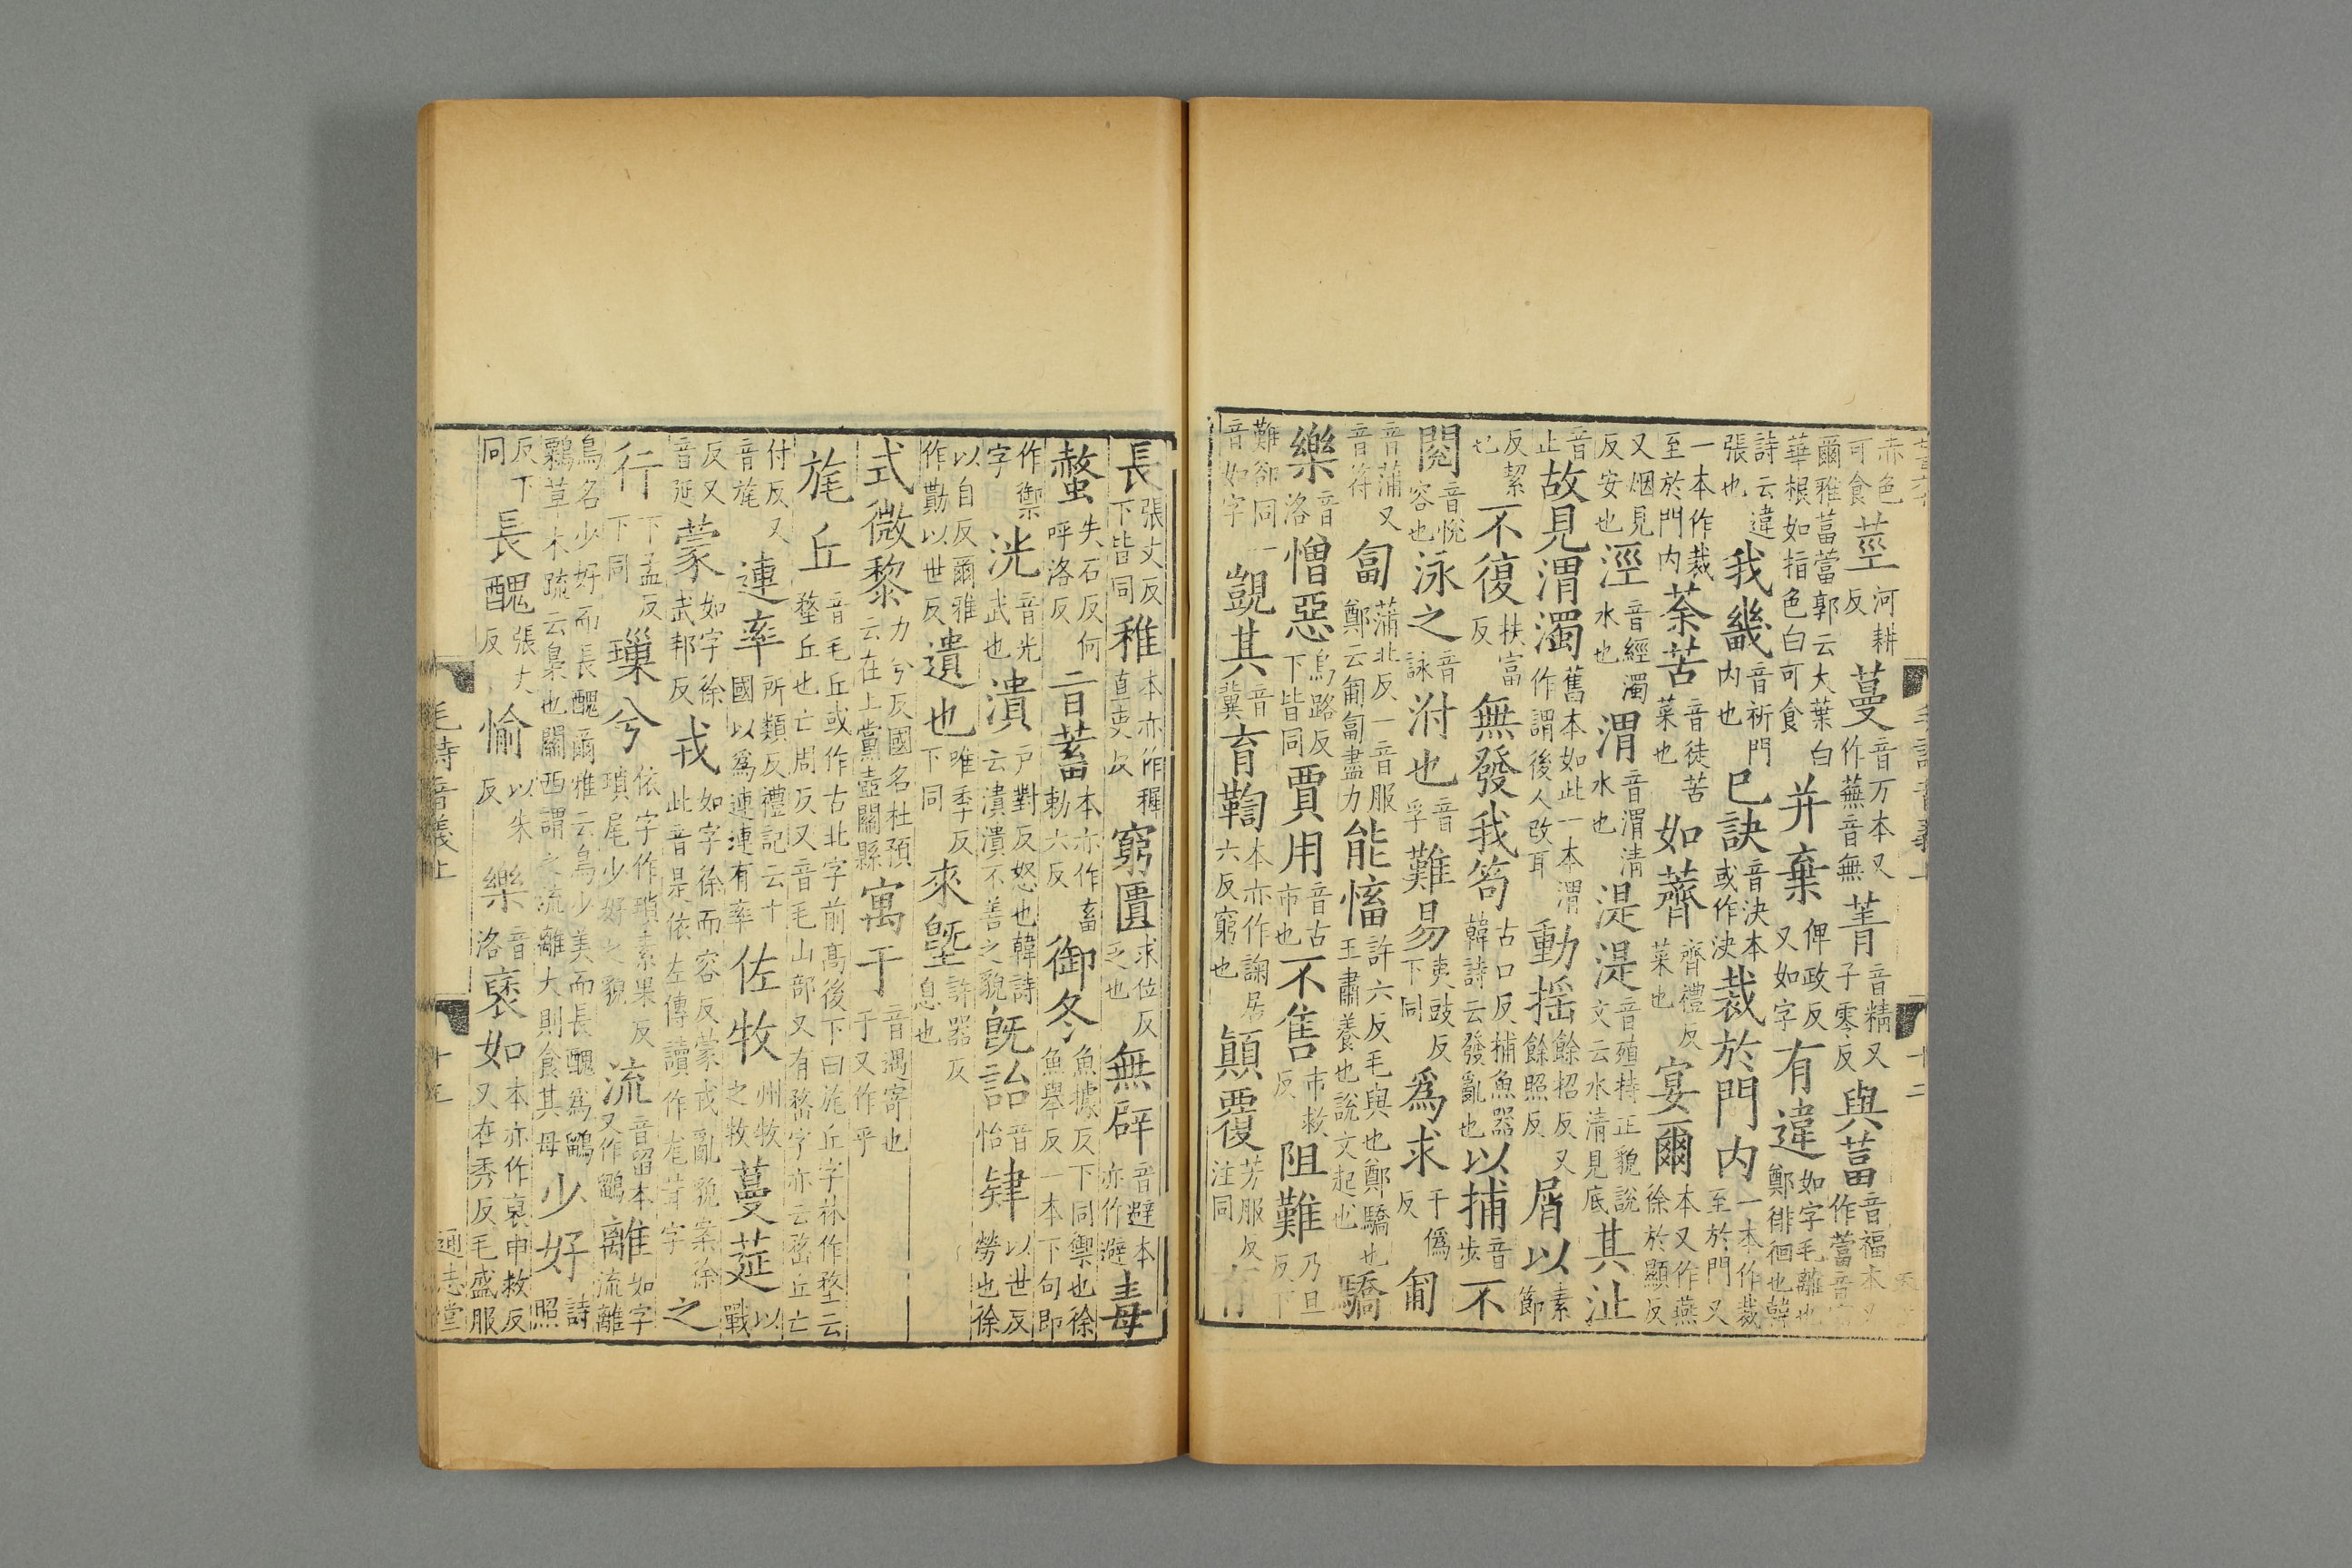 赤色可食莖河耕反蔓音万本又作蕪音無菁音精又子零反與葍音福本又作䔰音
爾雅葍䔰郭云大葉白華根如指色白可食并棄俾政反又如字有違如字毛離也鄭徘徊也韓
詩云違張也我畿音祈門内也已訣音決本或作決裁於門内一本作裁至於門又
一本作裁至於門内荼苦音徒苦菜也如薺齊禮反菜也宴爾本又作燕徐於顯反
又烟見反安也涇音經濁水也渭音渭清水也湜湜音殖持正貌說文云水清見底其沚
音止故見渭濁舊本如此一本渭作謂後人改耳動摇餘招反又餘照反屑以素節
反絜也不復扶富反無發我笱古口反捕魚器韓詩云發亂也以捕音步不
閱音悅容也泳之音詠泭也音孚難易夷豉反下同爲求于僞反匍
音蒲又音符匐蒲北反一音服鄭云匍匐盡力能慉許六反毛興也鄭驕也王肅養也說文起也驕
樂音洛憎惡烏路反下皆同賈用音古市也不售市救反阻難乃旦反下
難卻同一音如字覬其音冀育鞫本亦作諊居六反窮也顛覆芳服反注同
長張丈反下皆同稚本亦作稺直吏反窮匱求位反乏也無辟音避本亦作避毒
螫失石反何呼洛反旨蓄本亦作畜勅六反御冬魚據反下同禦也徐魚舉反一本下句即
作禦字洸音光武也潰戶對反怒也韓詩云潰潰不善之貌旣詒音怡肄以世反勞也徐
以自反爾雅作勩以世反遺也唯季反下同來墍許器反息也
式微黎力兮反國名杜預云在上黨壺關縣寓于音遇寄也于又作乎
旄丘音毛丘或作古北字前高後下曰旄丘字林作堥云堥丘也亡周反又音毛山部又有嵍字亦云嵍丘亡
付反又音旄連率所類反禮記云十國以爲連連有率佐牧州牧之牧蔓莚以戰
反又音延蒙如字徐武邦反戎如字徐而容反蒙戎亂貌案徐此音是依左傳讀作尨茸字之
行下孟反下同璅兮依字作瑣素果反瑣尾少好之貌流音留本又作鶹離如字流離
鳥名少好而長醜爾雅云鳥少美而長醜爲鶹鷅草木疏云梟也關西謂之流離大則食其母少好詩照
反下同長醜張丈反愉以朱反樂音洛褎如本亦作裒由救反又在秀反毛盛服
毛詩音義上
十三
通志堂